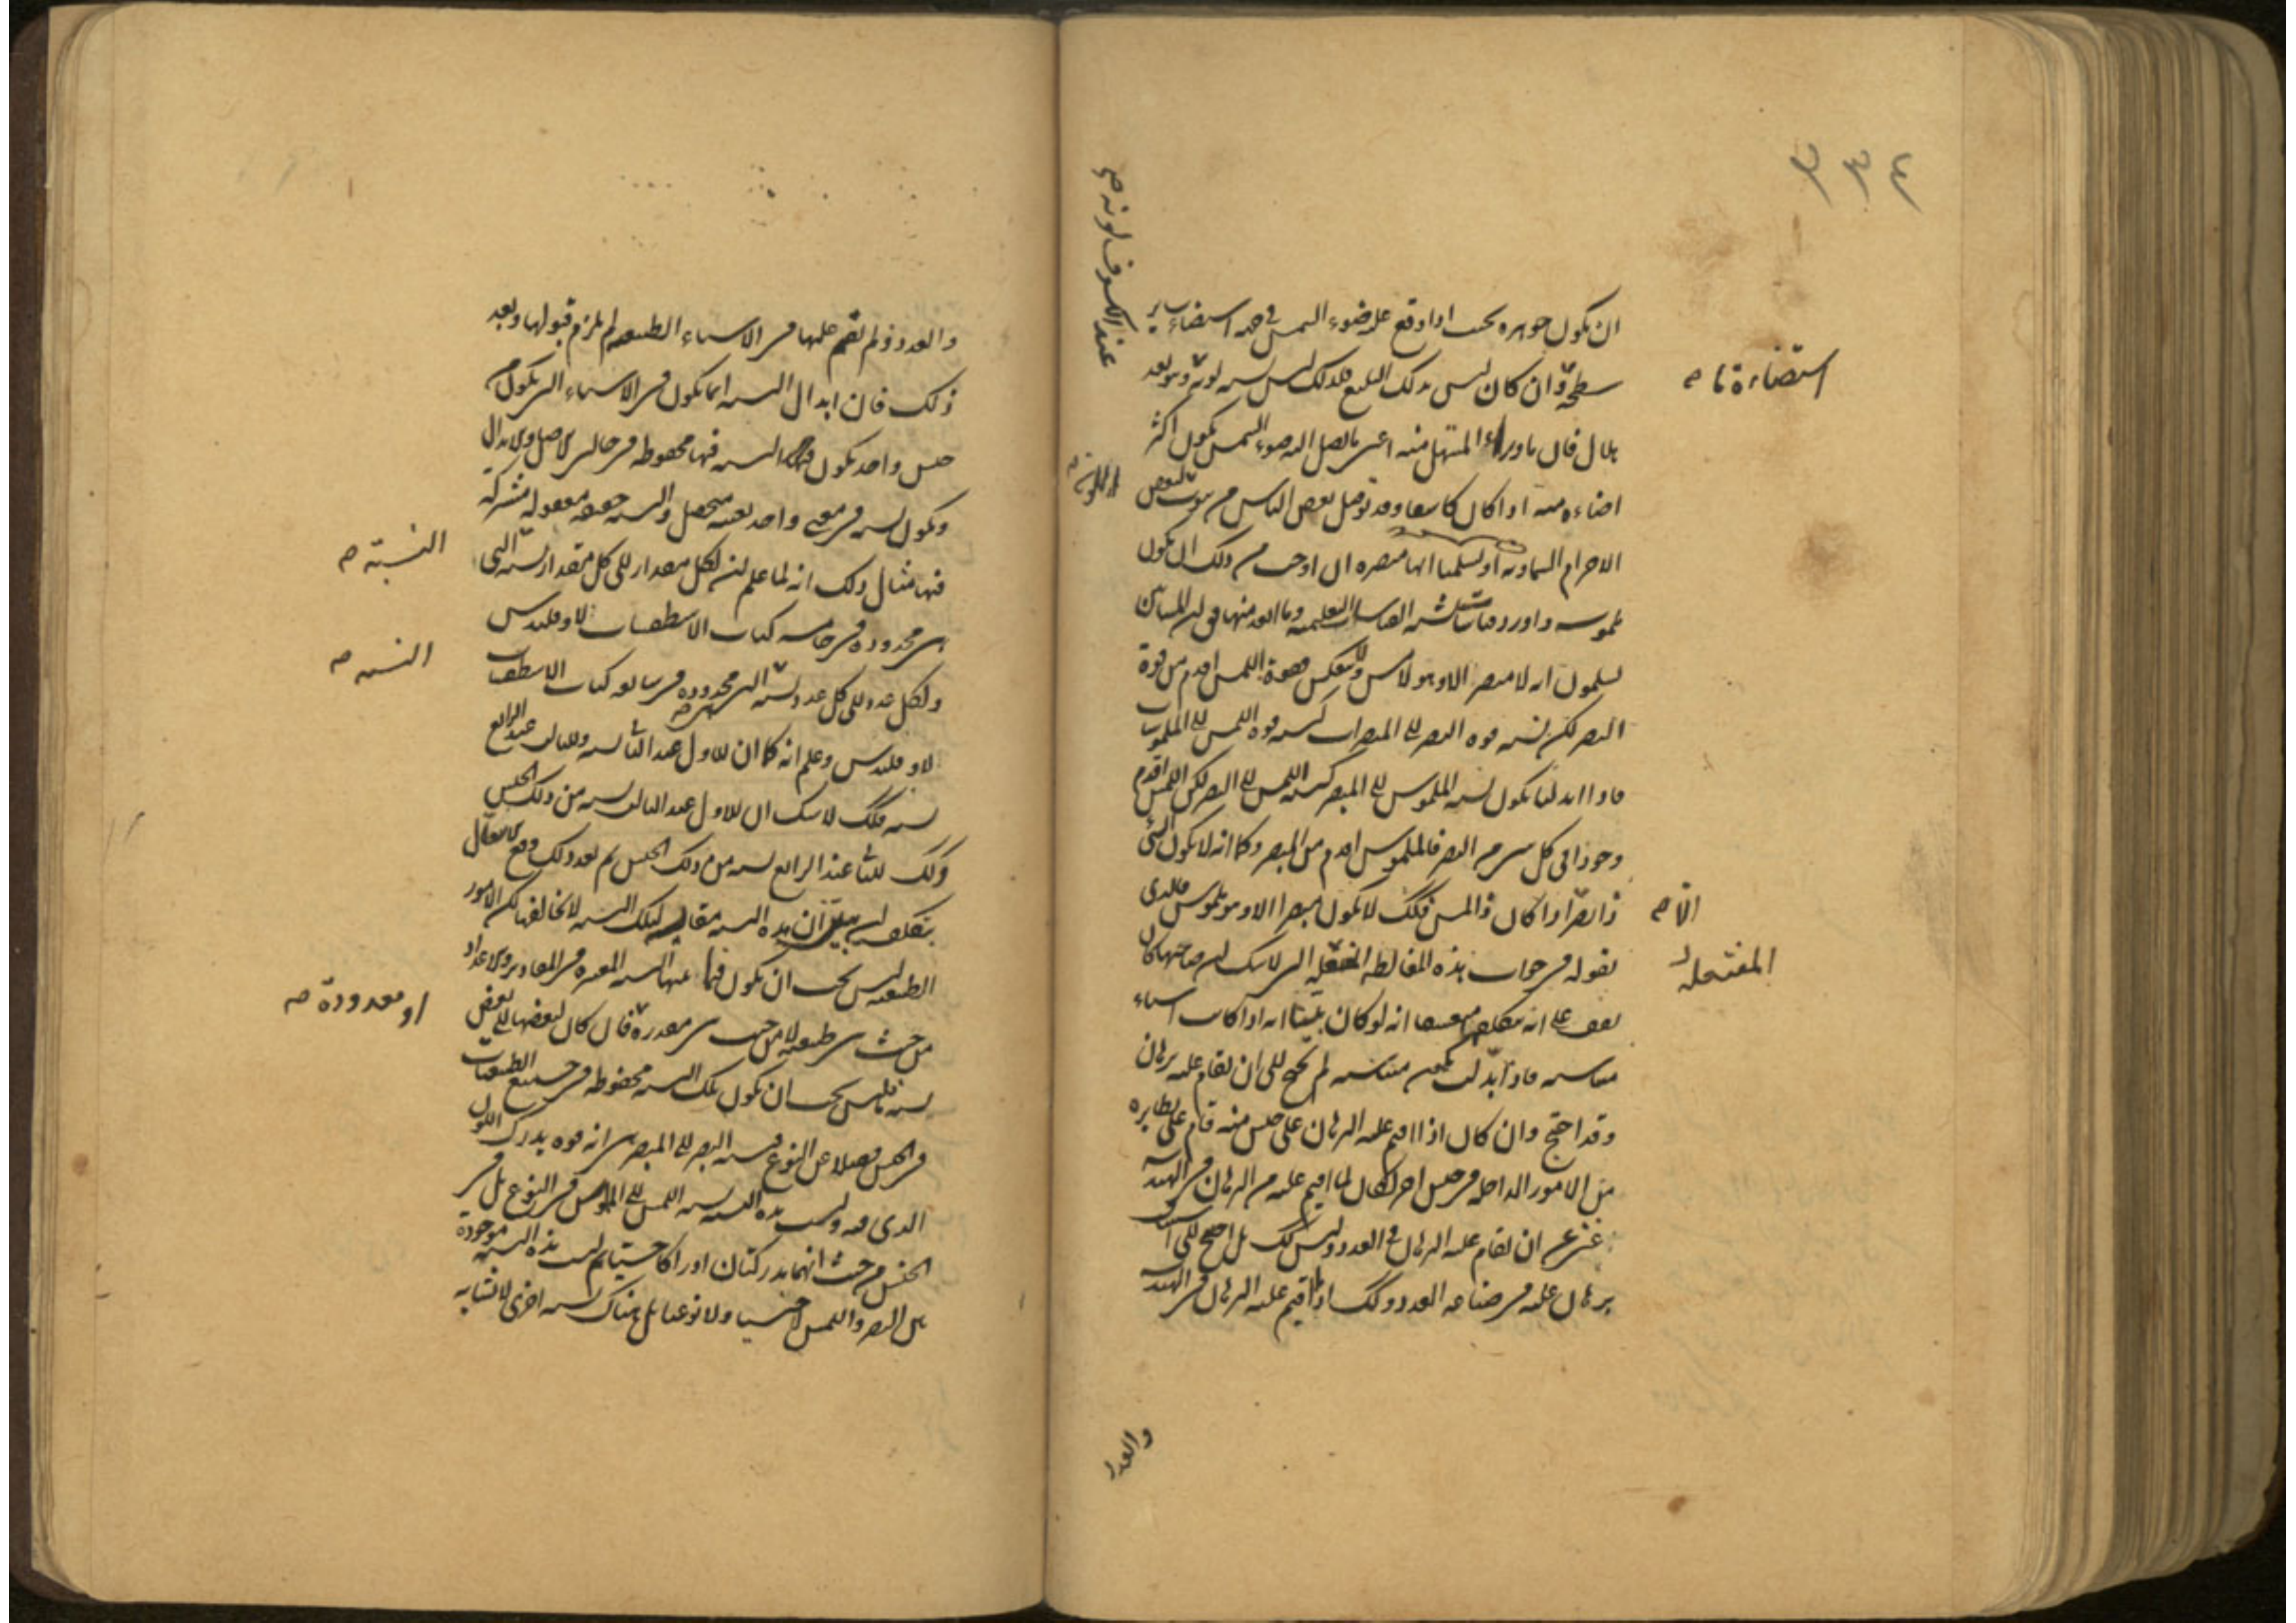 عند الكسوف لونه صح
ان يكون جوهره بحيث اذا وقع عليه ضوء الشمس في جهة استضاء سائر
استضاءة تا صح
سطحه وان كان ليس بذلك البليغ فلذلك ليس
هلال فان ما وراء المستهل منه اعني ما يصل اليه ضوء الشمس يكون اكثر
اضاءة منه اذا كان كاسفا وقد توصل بعض الناس من ثبوت لبعض
الاجرام السماوية او تسلمنا انها مبصرة الى ان اوجب من ذلك ان يكون
ملموسة واورد قياسات القياسات التعليمية وما ابعد منها في ان المشائين
يسلمون انه لا مبصر الا وهو لامس ولا ينعكس فقوة اللمس اقدم من قوة
البصر لكن نسبة قوة البصر الى المبصرات كنسبة قوة اللمس الى الملموسات
فاذا ابدلنا يكون نسبة الملموس الى المبصر كنسبة اللمس الى البصر لكن اللمس اقدم
وجودا في كل شيء من البصر فالملموس اقدم من المبصر وكما انه لا يكون الشيء
ذا بصر الا اذا كان ذا لمس فكذلك لا يكون مبصرا الا وهو ملموس فالذي
الا صح
نقوله في جواب هذه المغالطة المفتعلة التي لا شك ان صاحبها كان
المفتعلة
يقف على انه متكلف متعسف انه لو كان بينا انه اذا كانت اشياء
متناسبة فاذا ابدلت تكون متناسبة لم يحتج الى ان يقام عليه برهان
وقد احتج وان كان اذا اقيم عليه البرهان على جنس منه قام على نظايره
من الامور الداخلة في جنس اخر لكان لما اقيم عليه من البرهان في الهندسة
غنى عن ان يقام عليه البرهان في العدد وليس كذلك بل احتج الى استيناف
برهان عليه في صناعة العدد وكذلك اذا اقيم عليه البرهان في الهندسة
والعدد
والعدد ولم يقم عليها في الاشياء الطبيعية لم يلزم قبولها وبعد
ذلك فان ابدال النسبة انما يكون في الاشياء التي تكون من
جنس واحد يكون النسبة فيها محفوظة في حالتي الاصل والابدال
ويكون النسبة في معنى واحد بعينه متحصل والنسبة حقيقة معقولة مشتركة
فيها مثال ذلك انه لما علم ان لكل مقدار الى كل مقدار نسبة التي
النسبة صح
هي محدودة في خامسة كتاب الاسطقسات لاوقليدس
ولكل عدد الى كل عدد نسبة التي هي محدودة في سابعة كتاب الاسطقسات
النسبة صح
لاوقليدس وعلم انه كما ان للاول عند الثاني نسبة وللثالث عند الرابع
نسبة فكذلك لا شك ان للاول عند الثالث نسبة من ذلك الجنس
وكذلك للثاني عند الرابع نسبة من ذلك الجنس ثم بعد ذلك وقع الاشتغال
بتكلف ان يبين ان هذه النسبة مقايسة لتلك النسبة لا تخالفها لكن الامور
الطبيعية ليس يجب ان يكون فيما بينها النسبة المعتبرة في المقادير والاعداد
من حيث هي طبيعية لا من حيث هي مقدرة فان كان لبعضها الى بعض
او معدودة صح
نسبة ما فليس يجب ان يكون تلك النسبة محفوظة في جميع الطبيعيات
في الجنس فضلا عن النوع فنسبة البصر الى المبصر هي انه قوة يدرك اللون
الذي فيه وليست هذه النسبة نسبة اللمس الى الملموس في النوع بل في
الجنس من حيث انهما يدركان ادراكا حسيا ثم ليست هذه النسبة موجودة
بين البصر واللمس لا جنسيا ولا نوعيا بل هناك نسبة اخرى لا تشابه